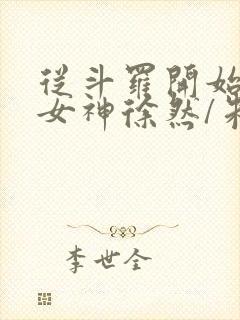 從斗羅開始
女神徐然/朱
李世全